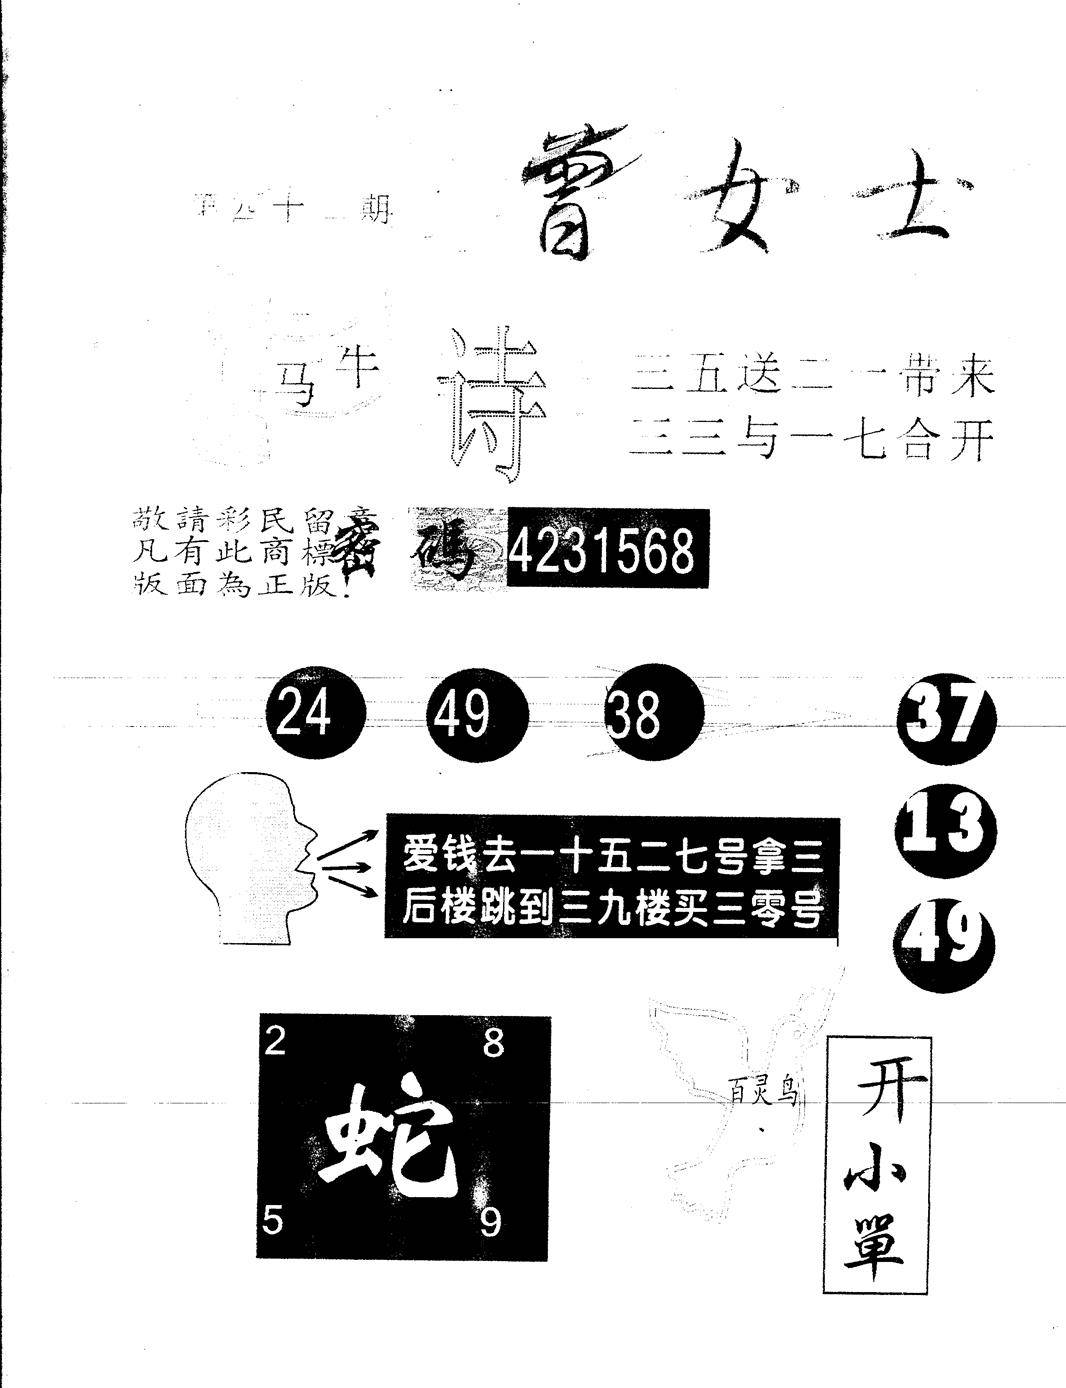 曾女士
第四十二期
马牛
诗
三五送二一带来
三三与一七合开
敬請彩民留意
凡有此商標
版面為正版!
密碼 4231568
24 49 38
37
13
49
爱钱去一十五二七号拿三
后楼跳到三九楼买三零号
2 8
蛇
5 9
百灵鸟
开小單